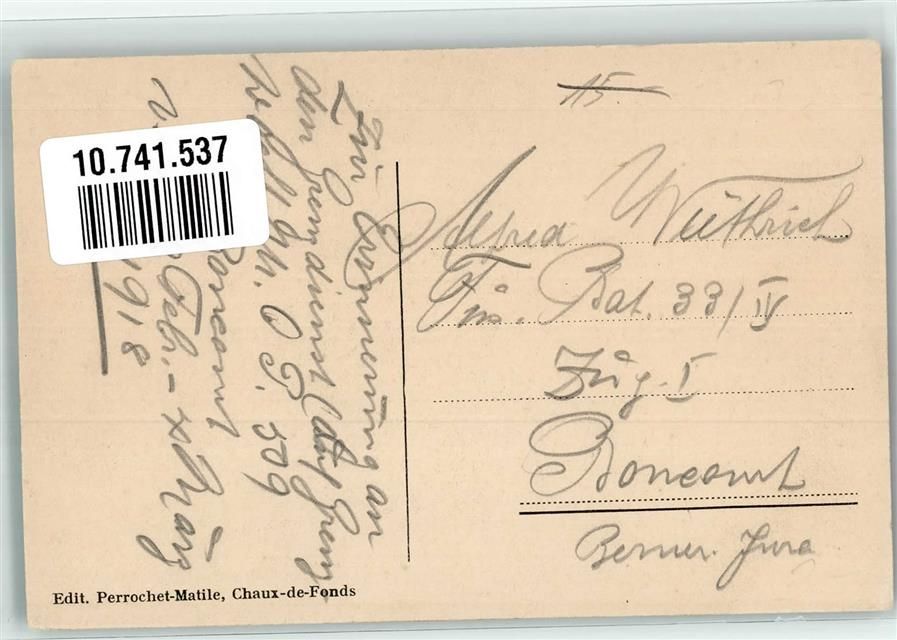 Zur Erinnerung an
den Grenzdienst (auf Grenz-
O.P. 509
Boncourt
Feb. - März
1918
10.741.537
15.
Alfred Wüthrich
Füs. Bat. 33/IV
Zug. I
Boncourt
Berner Jura
Edit. Perrochet-Matile, Chaux-de-Fonds